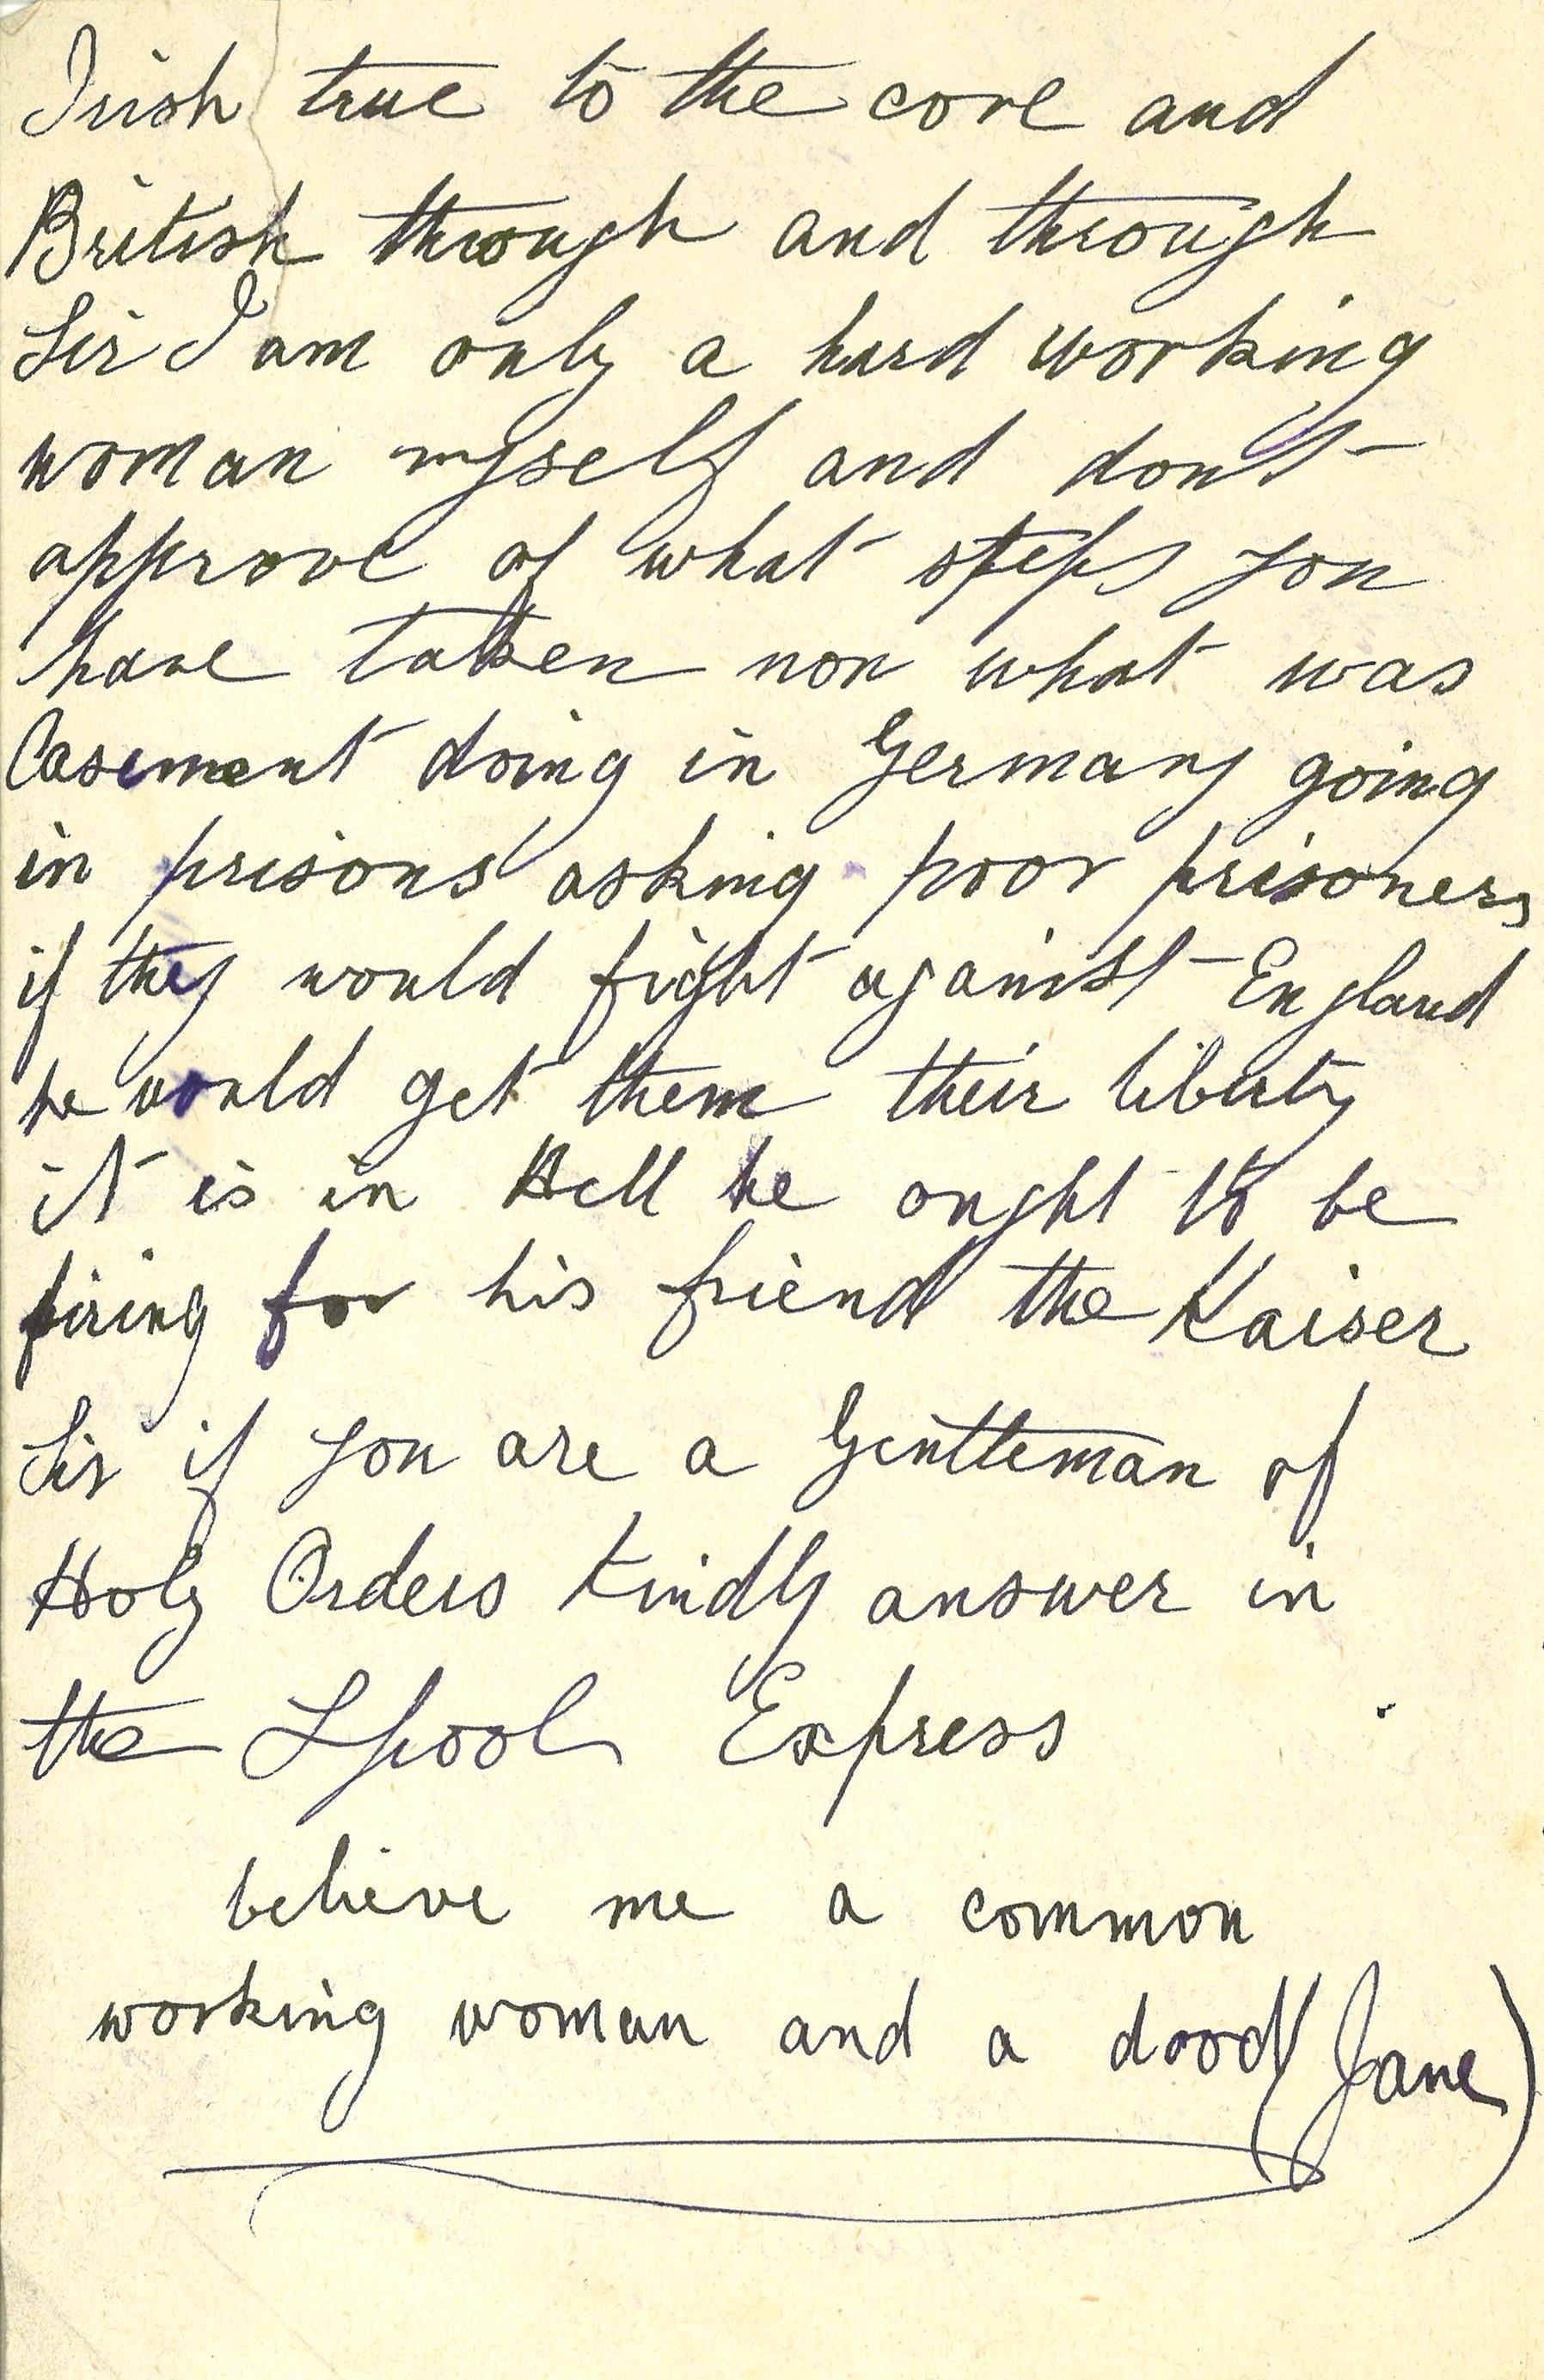 Irish true to the core and
British through and through
Sir I am only a hard working
woman myself and don't
approve of what steps you
have taken now what was
Casement doing in Germany going
in prisons asking poor prisoners
if they would fight against England
he would get them their liberty
it is in Hell he ought to be
firing for his friend the Kaiser
Sir if you are a Gentleman of
Holy Orders Kindly answer in
the Lpool Express
believe me a common
working woman and a dood (Jane)